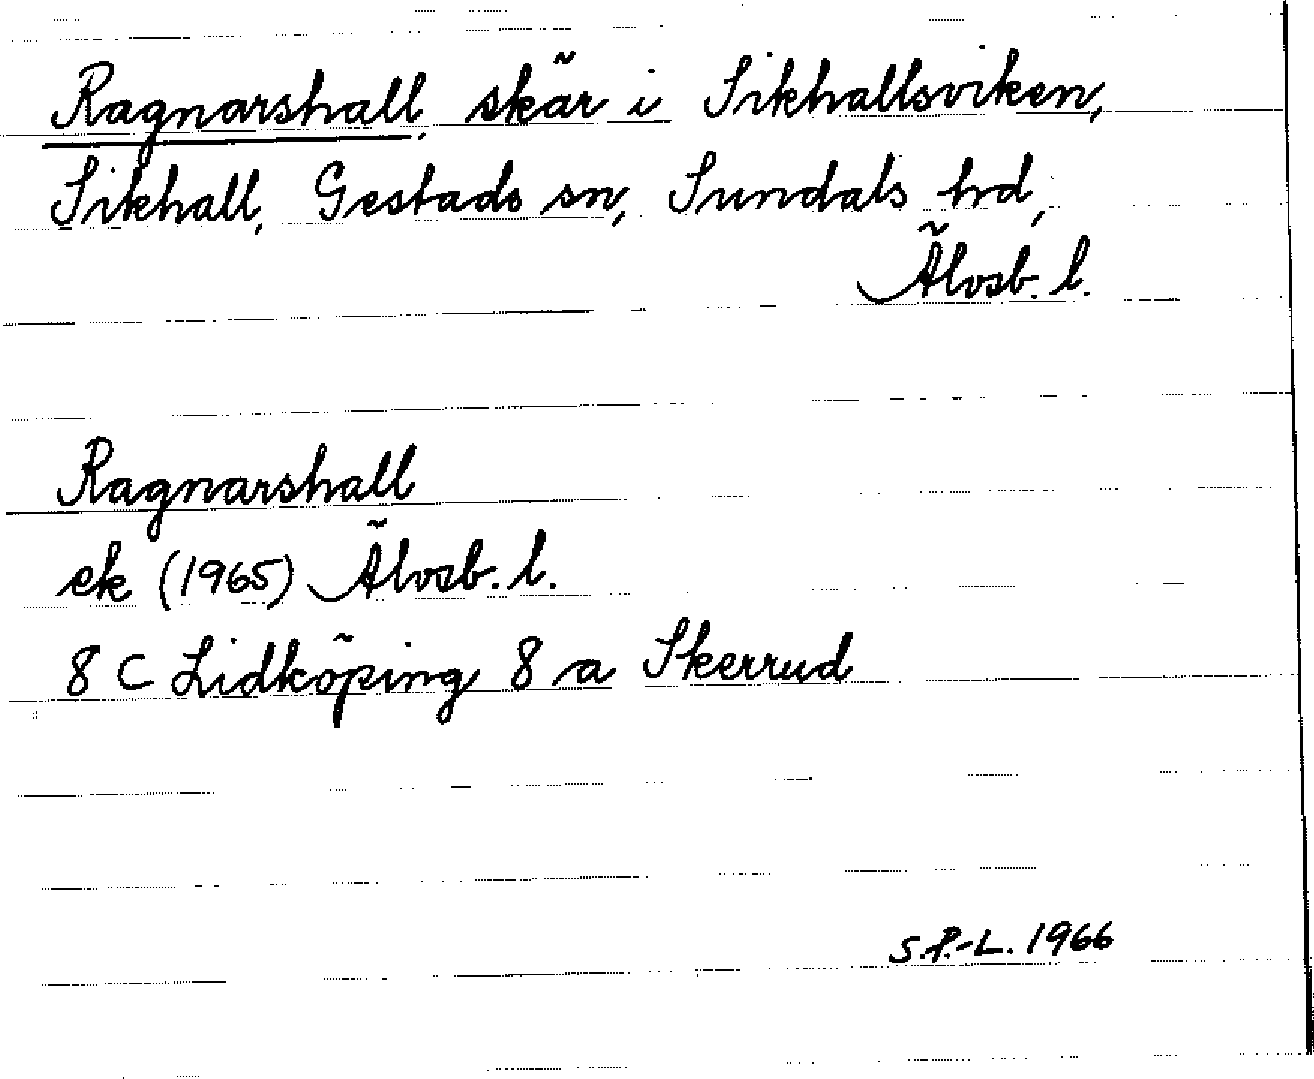 Ragnarshall, skär i Sikhallsviken,
Sikhall, Gestads sn, Sundals hd,
Älvsb. l.
Ragnarshall
ek (1965) Älvsb. l.
8 C Lidköping 8 a Skerrud
S.P.-L. 1966